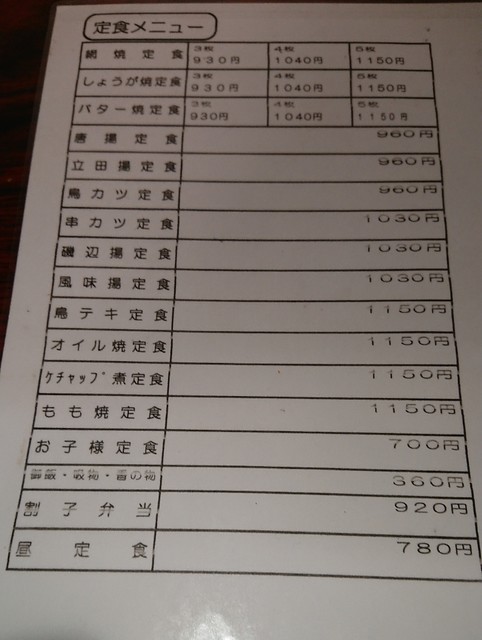 定食メニュー
網焼定食 3枚 930円 4枚 1040円 5枚 1150円
しょうが焼定食 3枚 930円 4枚 1040円 5枚 1150円
バター焼定食 3枚 930円 4枚 1040円 5枚 1150円
唐揚定食 960円
立田揚定食 960円
鳥カツ定食 960円
串カツ定食 1030円
磯辺揚定食 1030円
風味揚定食 1030円
鳥テキ定食 1150円
オイル焼定食 1150円
ケチャップ煮定食 1150円
もも焼定食 1150円
お子様定食 700円
御飯・穀物・香の物 360円
割子弁当 920円
昼定食 780円